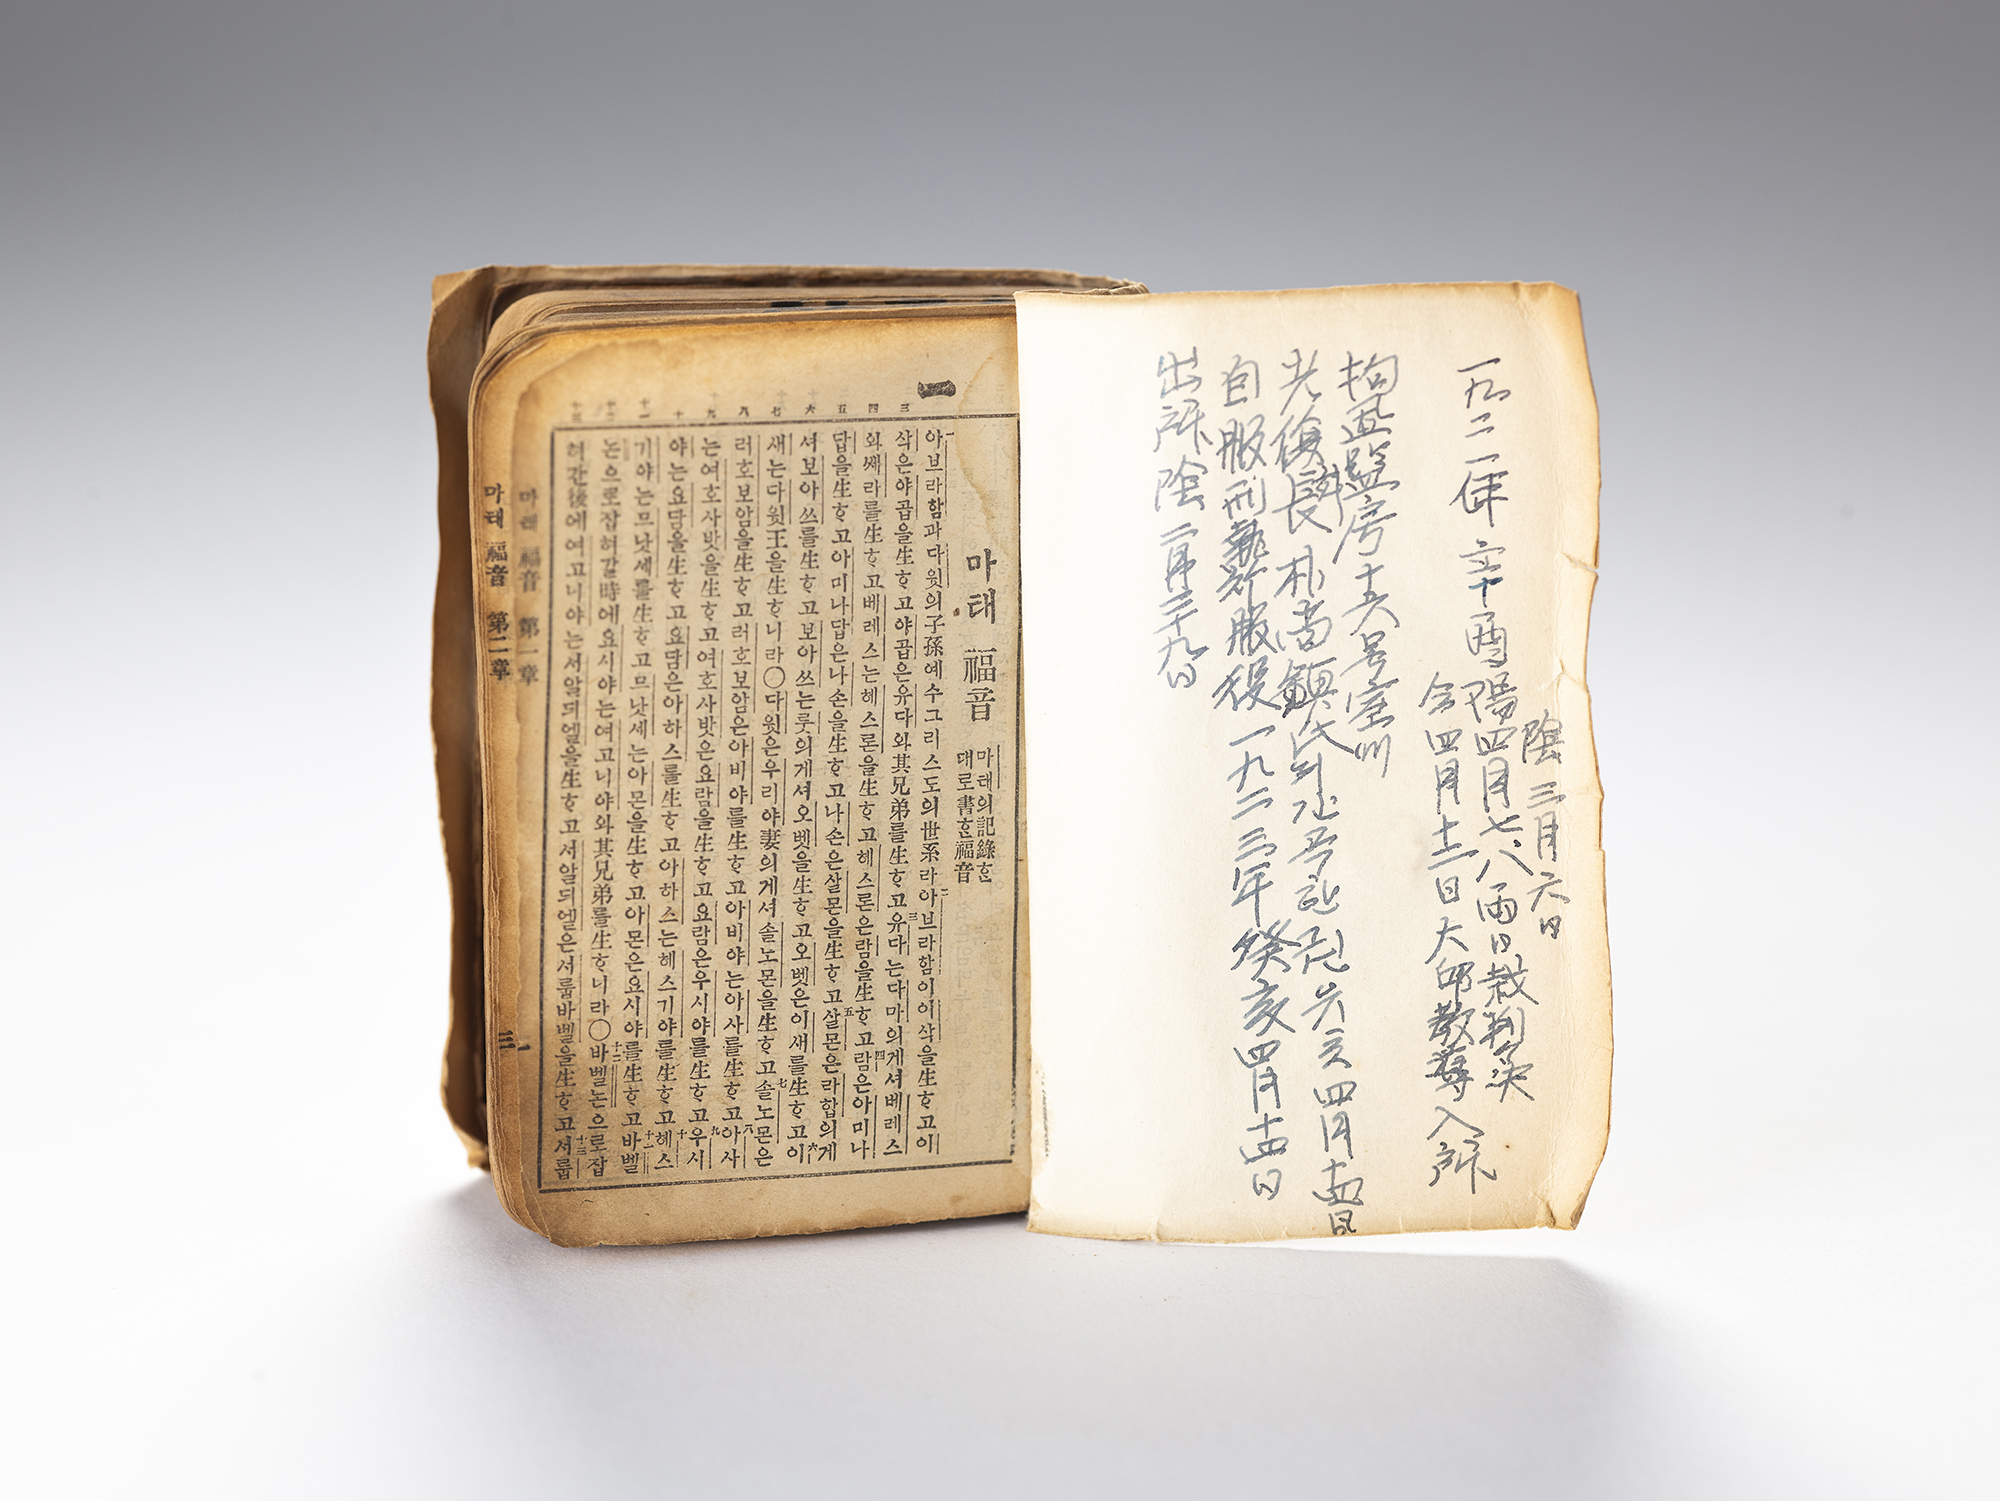 陰三月六日
一九二一年 辛酉 陽四月七、八両日裁判決
仝四月十二日大邱教導入所
拘置監房十五号室
光復團長朴尚鎮氏의간곡한권 四月
自服刑執行服役 一九二三年 癸亥四月十四日
出所陰二月二十九日
一
마태 福音 마태의記錄한
대로書한福音
三 四 五 六 七 八 九 十 十一 十二 十三
아브라함과다윗의子孫예수그리스도의世系라아브라함이이삭을生ᄒᆞ고이
삭은야곱을生ᄒᆞ고야곱은유다와其兄弟를生ᄒᆞ고유다는다마의게셔베레스
와쎄라를生ᄒᆞ고베레스는헤스론을生ᄒᆞ고헤스론은람을生ᄒᆞ고람은아미나
답을生ᄒᆞ고아미나답은나손을生ᄒᆞ고나손은살몬을生ᄒᆞ고살몬은라합의게
셔보아쓰를生ᄒᆞ고보아쓰는룻의게셔오벳을生ᄒᆞ고오벳은이새를生ᄒᆞ고이
새는다윗王을生ᄒᆞ니라〇다윗은우리야妻의게셔솔노몬을生ᄒᆞ고솔노몬은
러호보암을生ᄒᆞ고러호보암은아비야를生ᄒᆞ고아비야는아사를生ᄒᆞ고아사
는여호사밧을生ᄒᆞ고여호사밧은요람을生ᄒᆞ고요람은우시야를生ᄒᆞ고우시
야는요담을生ᄒᆞ고요담은아하스를生ᄒᆞ고아하스는헤스기야를生ᄒᆞ고헤스
기야는므낫세를生ᄒᆞ고므낫세는아몬을生ᄒᆞ고아몬은요시야를生ᄒᆞ고바벨
논으로잡혀갈時에요시야는여고니야와其兄弟를生ᄒᆞ니라〇바벨논으로잡
혀간後에여고니야는서알듸엘을生ᄒᆞ고서알듸엘은서룹바벨을生ᄒᆞ고서룹
마태 福音 第一章 一
마태 福音 第二章 三